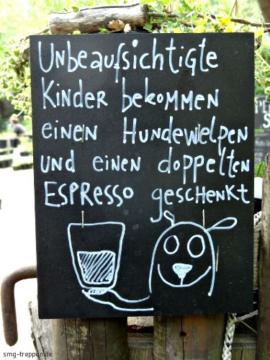 Unbeaufsichtigte
Kinder bekommen
einen Hundewelpen
und einen doppelten
ESPRESSO geschenkt
smg-treppen.de